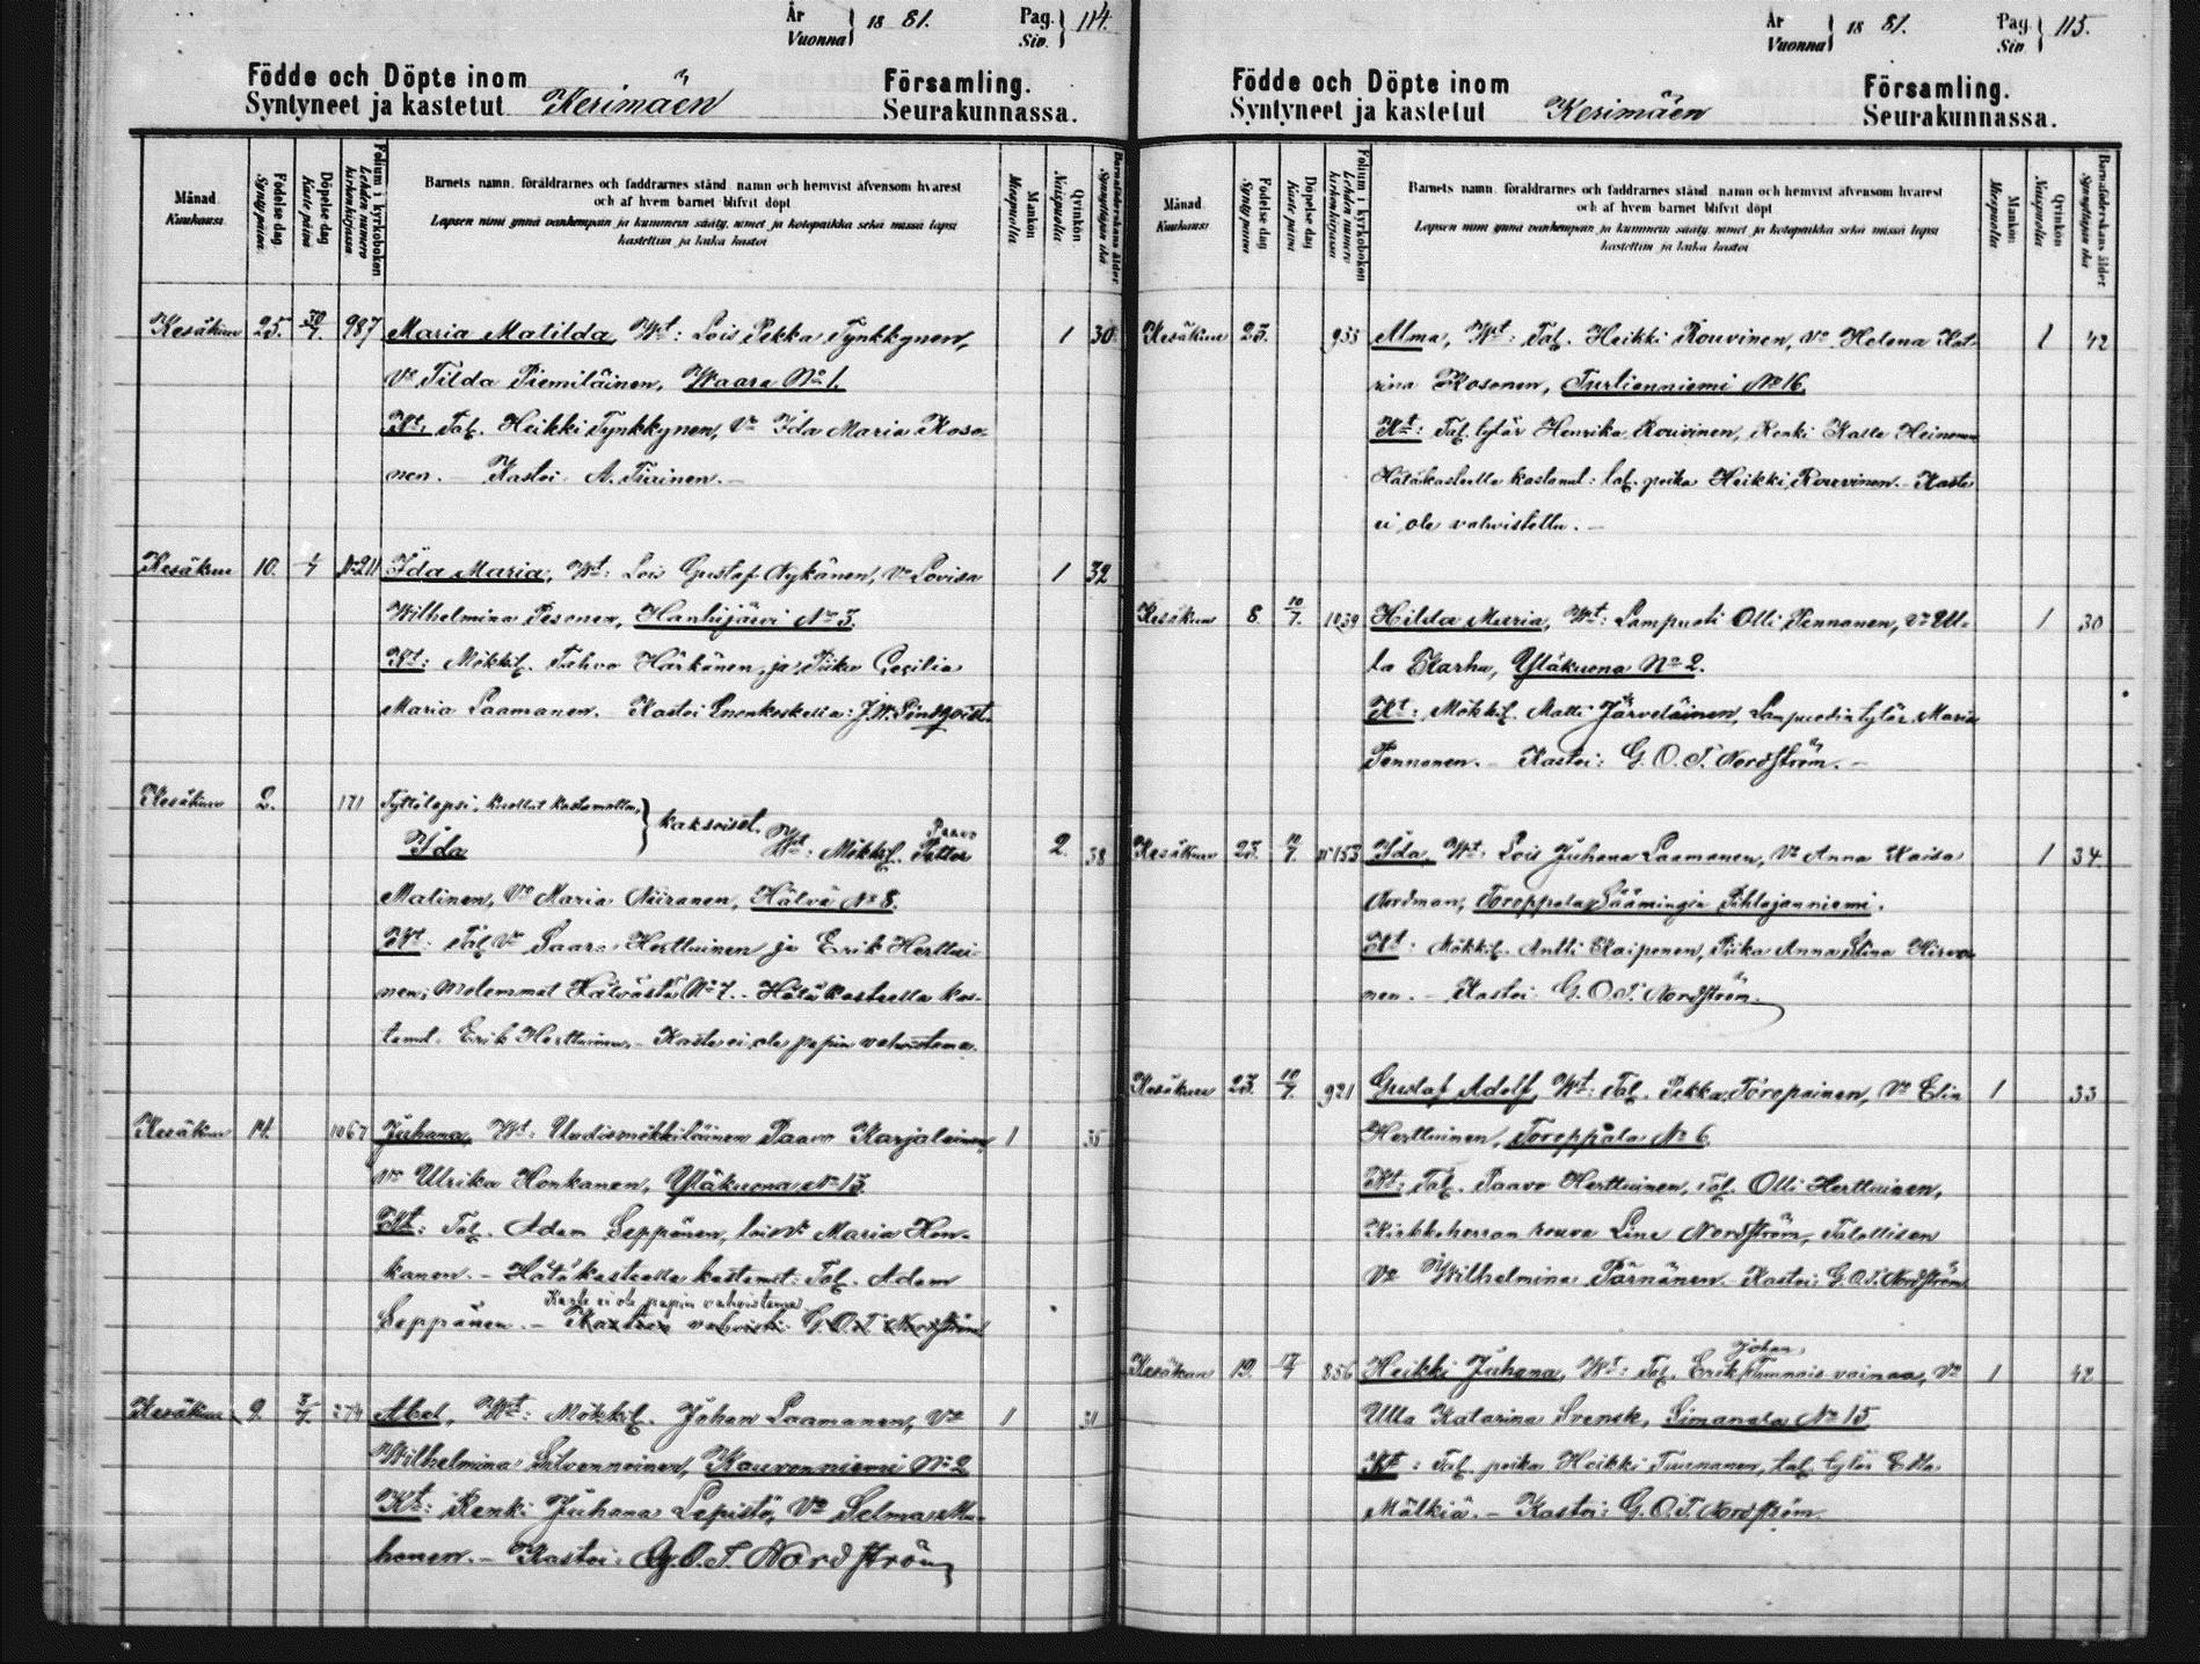 År
Vuonna } 1881. Pag.
Siv. } 114.
Födde och Döpte inom
Syntyneet ja kastetut Kerimäen Församling.
Seurakunnassa.
Månad Kuukausi
Födelse dag Synty päivä
Döpelse dag Kaste päivä
Folium i kyrkoboken Lehden numero kirkonkirjassa
Barnets namn, föräldrarnes och faddrarnes stånd, namn och hemvist äfvensom hvarest
och af hvem barnet blifvit döpt
Lapsen nimi ynnä vanhempain ja kummein sääty, nimet ja kotopaikka sekä missä lapsi
kastettiin ja kuka kastoi
Mankön Miespuolia
Qvinkön Naispuolia
Barnaföderskans ålder Synnyttäjän ikä
Kesäkuu 25. 30/7. 987 Maria Matilda, Wt: Lois Pekka Tynkkynen, 1 30
Vo Tilda Piemiläinen, Waara No 1.
Kt: Tal. Heikki Tynkkynen, Vo Ida Maria Koso-
nen. — Kastoi: A. Tiirinen. —
Kesäkuu 10. 4 No 211 Ida Maria, Wt: Lois Gustaf Nykänen, Vo Lovisa 1 32
Wilhelmina Pesonen, Hanhijärvi No 3.
Kt: Mökkil. Tahvo Härkönen, ja Piika Cecilia
Maria Laamanen. Kastoi Enonkoskella: J.W. Lindqvist.
Kesäkuu 2. 171 Tyttölapsi, kuollut kastamatta, } kaksoiset. Wt: Mökkil. Paavo Petter 2. 38
Ida
Malinen, Vo Maria Niiranen, Hälvä No 8.
Kt: Tal. Vo Saara Herttuinen ja Erik Herttui-
nen; molemmat Hälvästä No 7. Hätäkasteella kas-
tanut. Erik Herttuinen. — Kaste ei ole papin vahvistama.
Kesäkuu 14. 1067 Juhana, Wt: Uudismökkiläinen Paavo Karjalainen, 1 35
Vo Ulrika Honkanen, Yläkuona No 13.
Kt: Tal. Adam Seppänen, lois Vo Maria Hon-
kanen. — Hätäkasteella kastanut: Tal. Adam
Kaste ei ole papin vahvistama
Seppänen. — Kasteen vahvisti G.O.T. Nordström
Kesäkuu 9. 3/7. 274 Abel, Wt: Mökkil. Johan Laamanen, Vo 1 31
Wilhelmina Silvennoinen, Kauvonniemi No 2
Kt: Renki Juhana Lepistö, Vo Selma Mu-
honen. — Kastoi: G.O.T. Nordström
År
Vuonna } 1881. Pag
Siv } 115.
Födde och Döpte inom
Syntyneet ja kastetut Kerimäen Församling.
Seurakunnassa.
Månad Kuukausi
Födelse dag Synty päivä
Döpelse dag Kaste päivä
Folium i kyrkoboken Lehden numero kirkonkirjassa
Barnets namn, föräldrarnes och faddrarnes stånd, namn och hemvist äfvensom hvarest
och af hvem barnet blifvit döpt
Lapsen nimi ynnä vanhempain ja kummein sääty, nimet ja kotopaikka sekä missä lapsi
kastettiin ja kuka kastoi
Mankön Miespuolia
Qvinkön Naispuolia
Barnaföderskans ålder Synnyttäjän ikä
Kesäkuu 23. 955 Alma, Wt: Tal. Heikki Rouvinen, Vo Helena Kat- 1 42
rina Kosonen, Turtienniemi No 16.
Kt: Tal. tytär Henrika Rouvinen, Renki Kalle Heinonen
Hätäkasteella kastanut: tal. poika Heikki Rouvinen. — Kaste
ei ole vahvistettu. —
Kesäkuu 8. 10/7. 1039 Hilda Maria, Wt: Lampuoti Olli Pennanen, Vo Ul- 1 30
la Karhu, Yläkuona No 2.
Kt: Mökkil. Matti Järveläinen, Lampuodin tytär Maria
Pennanen. — Kastoi: G.O.T. Nordström. —
Kesäkuu 23. 10/7. No 153 Ida, Wt: Lois Juhana Laamanen, Vo Anna Kaisa 1 34
Nordman, Toroppala, Säämingin Pihlajanniemi.
Kt: Mökkil. Antti Kaiponen, Piika Anna Stina Hirvo-
nen. — Kastoi: G.O.T. Nordström.
Kesäkuu 23. 10/7. 921 Gustaf Adolf, Wt: Tal. Pekka Toropainen, Vo Elin 1 33
Herttuinen, Toroppala No 6.
Kt: Tal. Paavo Herttuinen, Tal. Olli Herttuinen,
Kirkkoherran rouva Lina Nordström, Talollisen
Vo Wilhelmina Pärnänen. Kastoi: G.O.T. Nordström
Johan
Kesäkuu 19. 17/7 856 Heikki Juhana, Wt: Tal. Erik Tuunais vainaa, Vo 1 42
Ulla Katarina Svensk, Simanala No 15.
Kt: Tal. poika Heikki Tuunanen, tal. tytär Edla
Mälkiä. — Kastoi: G.O.T. Nordström.